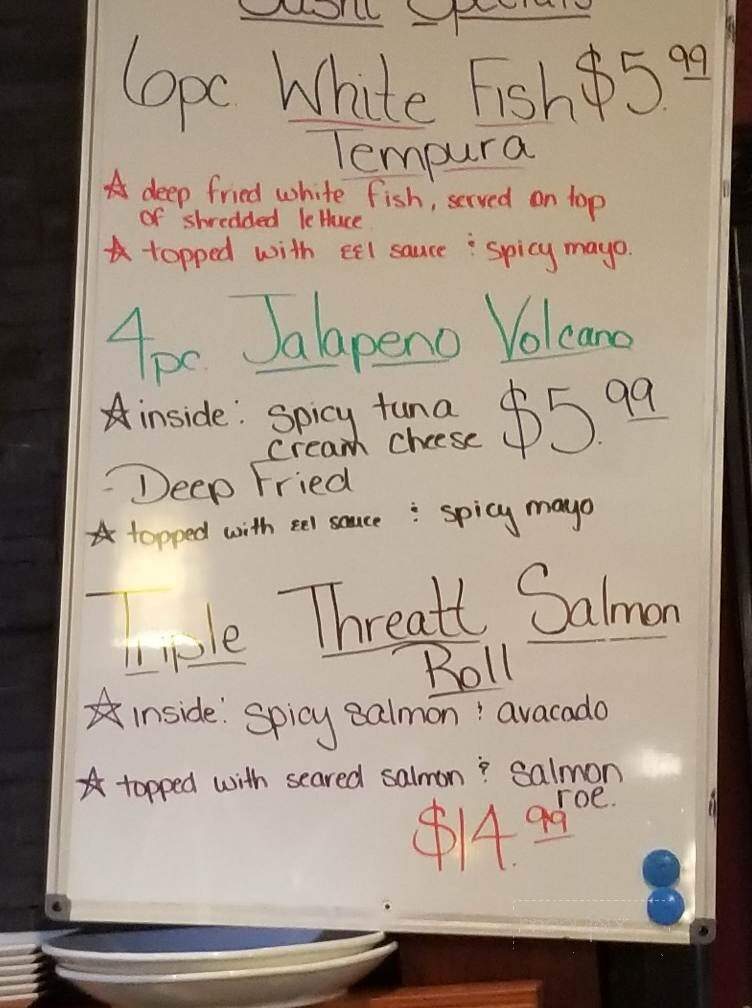 Sushi Specials
6pc. White Fish $5.99
Tempura
☆ deep fried white fish, served on top
of shredded lettuce
☆ topped with eel sauce & spicy mayo.
4pc. Jalapeno Volcano
☆ inside: spicy tuna $5.99
cream cheese
- Deep Fried
☆ topped with eel sauce & spicy mayo
Triple Threatt Salmon
Roll
☆ inside: spicy salmon & avacado
☆ topped with seared salmon & salmon
roe.
$14.99